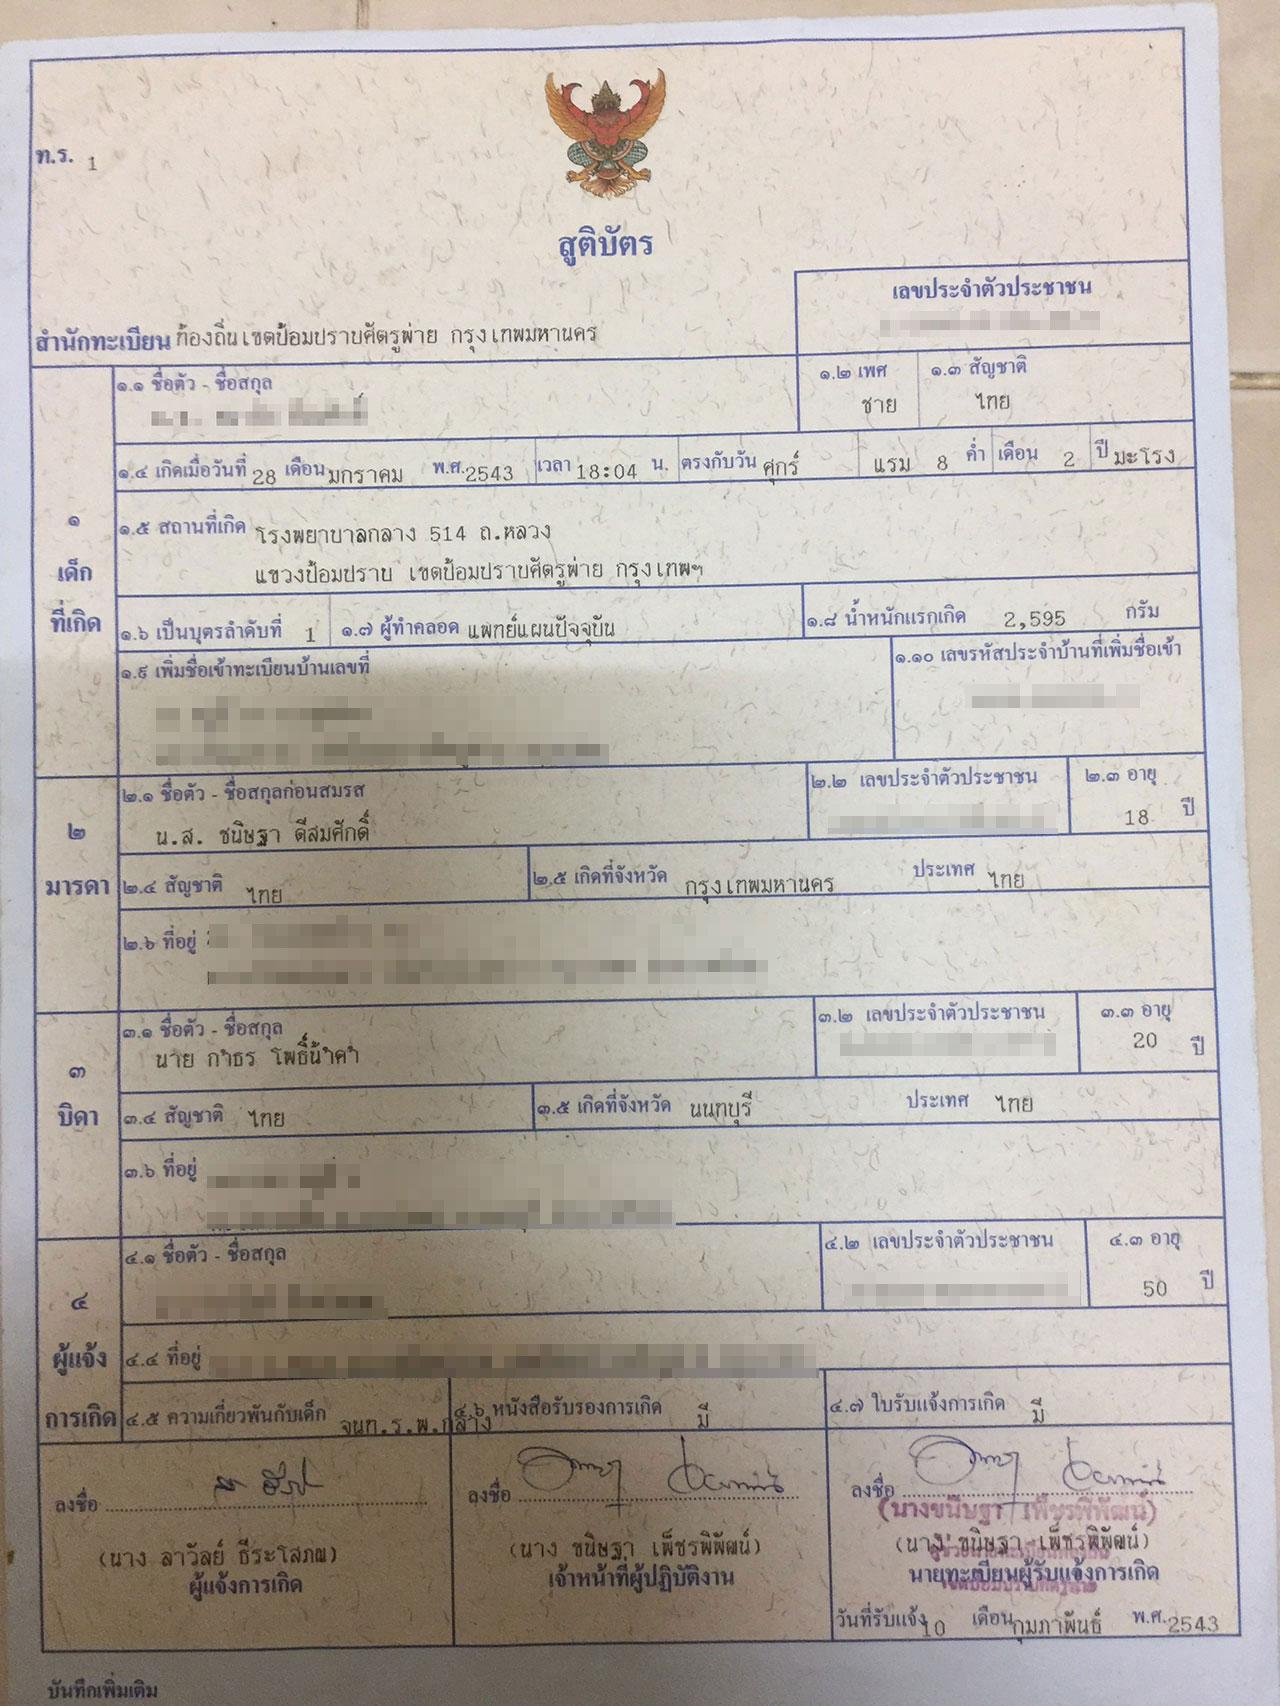 ท.ร. 1
สูติบัตร
เลขประจำตัวประชาชน
สำนักทะเบียน ท้องถิ่นเขตป้อมปราบศัตรูพ่าย กรุงเทพมหานคร
๑ เด็กที่เกิด
๑.๑ ชื่อตัว - ชื่อสกุล
๑.๒ เพศ ชาย
๑.๓ สัญชาติ ไทย
๑.๔ เกิดเมื่อวันที่ 28 เดือน มกราคม พ.ศ. 2543 เวลา 18:04 น. ตรงกับวัน ศุกร์ แรม 8 ค่ำ เดือน 2 ปี มะโรง
๑.๕ สถานที่เกิด โรงพยาบาลกลาง 514 ถ.หลวง
แขวงป้อมปราบ เขตป้อมปราบศัตรูพ่าย กรุงเทพฯ
๑.๖ เป็นบุตรลำดับที่ 1 ๑.๗ ผู้ทำคลอด แพทย์แผนปัจจุบัน ๑.๘ น้ำหนักแรกเกิด 2,595 กรัม
๑.๙ เพิ่มชื่อเข้าทะเบียนบ้านเลขที่ ๑.๑๐ เลขรหัสประจำบ้านที่เพิ่มชื่อเข้า
๒ มารดา
๒.๑ ชื่อตัว - ชื่อสกุลก่อนสมรส ๒.๒ เลขประจำตัวประชาชน ๒.๓ อายุ
น.ส. ชนิษฐา ดีสมศักดิ์ 18 ปี
๒.๔ สัญชาติ ไทย ๒.๕ เกิดที่จังหวัด กรุงเทพมหานคร ประเทศ ไทย
๒.๖ ที่อยู่
๓ บิดา
๓.๑ ชื่อตัว - ชื่อสกุล ๓.๒ เลขประจำตัวประชาชน ๓.๓ อายุ
นาย กำธร โพธิ์น้ำคำ 20 ปี
๓.๔ สัญชาติ ไทย ๓.๕ เกิดที่จังหวัด นนทบุรี ประเทศ ไทย
๓.๖ ที่อยู่
๔ ผู้แจ้งการเกิด
๔.๑ ชื่อตัว - ชื่อสกุล ๔.๒ เลขประจำตัวประชาชน ๔.๓ อายุ
50 ปี
๔.๔ ที่อยู่
๔.๕ ความเกี่ยวพันกับเด็ก จนท.ร.พ.กลาง ๔.๖ หนังสือรับรองการเกิด มี ๔.๗ ใบรับแจ้งการเกิด มี
ลงชื่อ
(นาง ลาวัลย์ ธีระโสภณ)
ผู้แจ้งการเกิด
ลงชื่อ
(นาง ขนิษฐา เพ็ชรพิพัฒน์)
เจ้าหน้าที่ผู้ปฏิบัติงาน
ลงชื่อ
(นางขนิษฐา เพ็ชรพิพัฒน์)
(นาง ขนิษฐา เพ็ชรพิพัฒน์)
นายทะเบียนผู้รับแจ้งการเกิด
วันที่รับแจ้ง 10 เดือน กุมภาพันธ์ พ.ศ. 2543
บันทึกเพิ่มเติม